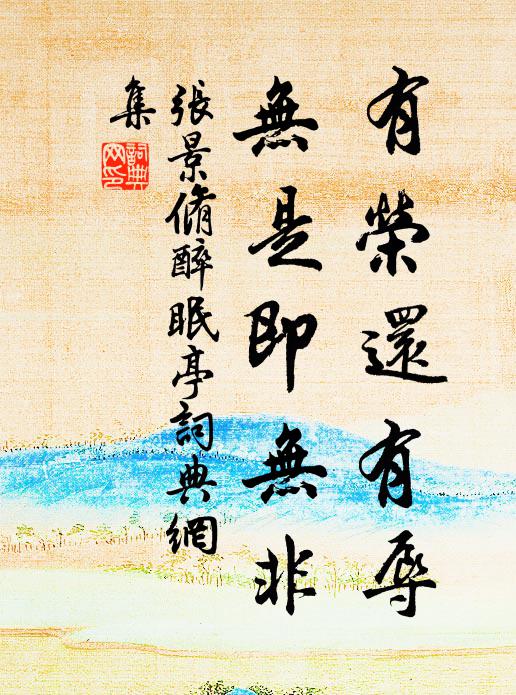 有榮還有辱
無是即無非
張景脩醉眠亭詞典網
集
詞典
网印